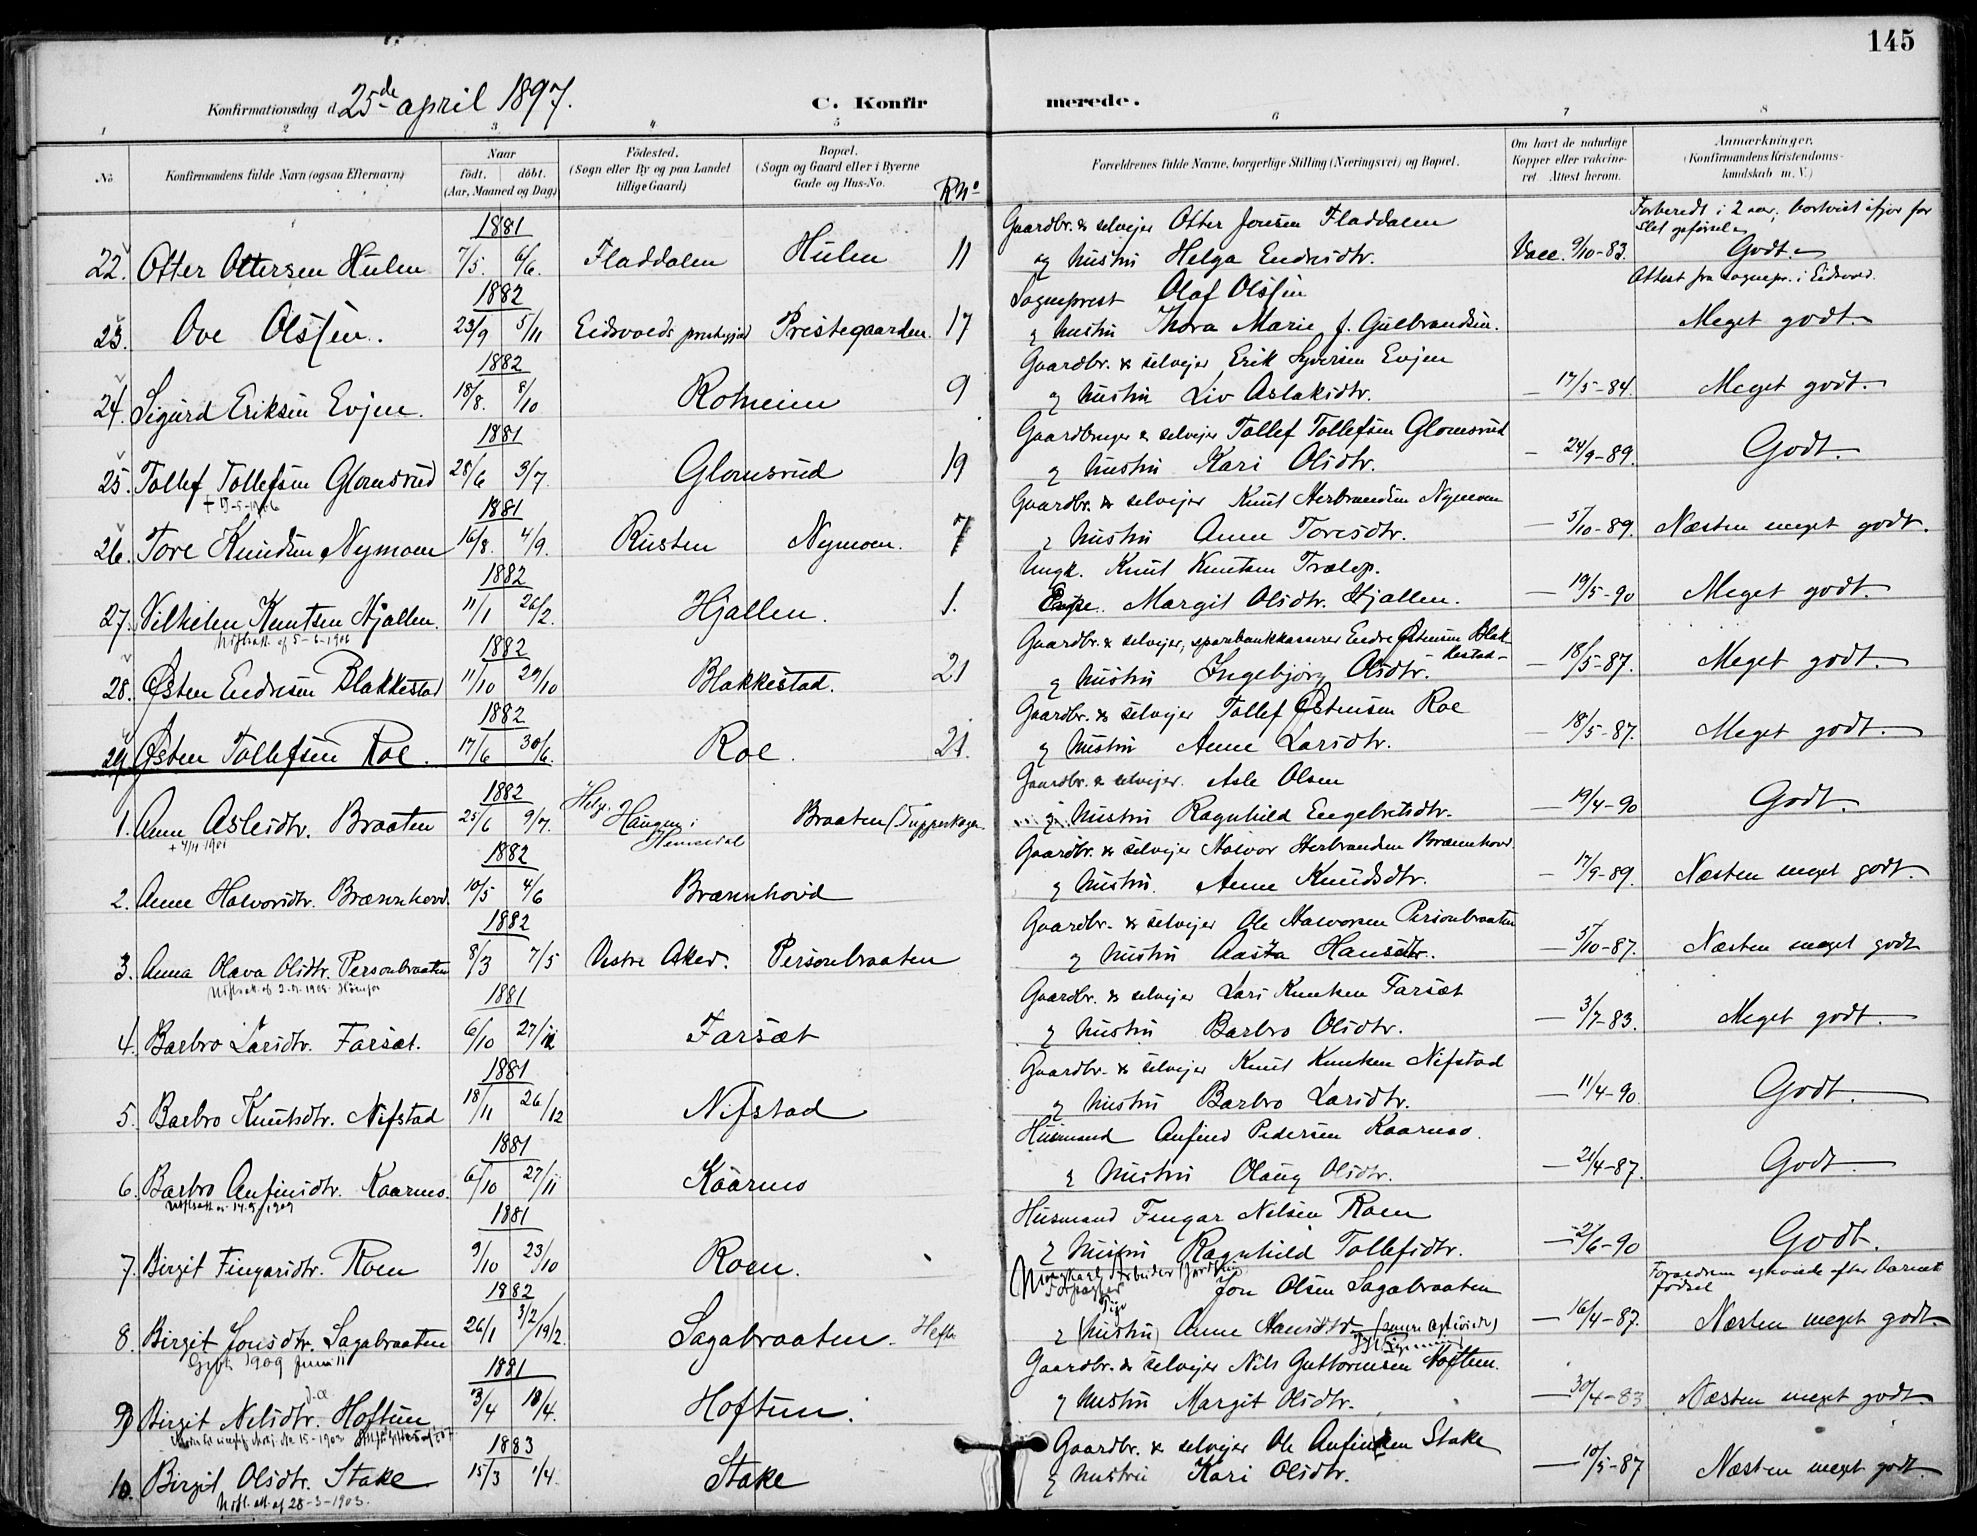 145
Konfirmationsdag d. 25de april 1897.
C. Konfir merede.
1 2 3 4 5 6 7 8
No. Konfirmandens fulde Navn (ogsaa Efternavn) Naar født. døbt. (Aar, Maaned og Dag) Fødested. (Sogn eller By og paa Landet tillige Gaard) Bopæl. (Sogn og Gaard eller i Byerne Gade og Hus-No. R No Forældrenes fulde Navne, borgerlige Stilling (Næringsvei) og Bopæl. Om havt de naturlige Kopper eller vakcineret. Attest herom. Anmærkninger. (Konfirmandens Kristendomskundskab m. V.)
1881 Gaardbr. & selvejer Otter Jonsen Fladdalen Forberedt i 2 aar; bortvist ifjor for slet opførsel
22. Otter Ottersen Hulen 7/5. 6/6. Fladdalen Hulen 11 og hustru Helga Endresdtr. Vacc. 9/10-83. Godt.
1882 Sogneprest Olaf Olssen Attest fra sognepr. i Eidsvold.
23. Ove Olssen. 23/9 5/11 Eidsvolds prestegjeld Prestegaarden. 17 & hustru Thora Marie f. Gulbrandsen. Meget godt.
1882 Gaardbr. & selvejer Erik Syversen Evjen
24. Sigurd Eriksen Evjen. 18/8. 8/10 Rotneim 9 & hustru Liv Aslaksdtr. — 17/5-84. Meget godt.
1881 Gaardbruger & selvejer Tollef Tollefsen Glomsrud
25. Tollef Tollefsen Glomsrud 28/6 3/7. Glomsrud 19 & hustru Kari Olsdtr. - 24/9-89. Godt.
1881 Gaardbr. & selvejer Knut Herbrandsen Nymoen
26. Tore Knudsen Nymoen 16/8. 4/9. Rusten Nymoen. 7 & hustru Anne Toresdtr. — 5/10-89. Næsten meget godt.
1882 Ungk. Knut Knutsen Trælop.
27. Vilhelm Knutsen Hjallen. 11/1 26/2. Hjallen. 1. Margit Olsdtr. Hjallen. — 19/5-90 Meget godt.
Udfl.att. af 5-6-1906
1882 Gaardbr. & selvejer, sparbankkasserer Endre Østensen Blakkestad
28. Østen Endresen Blakkestad 11/10 29/10 Blakkestad. 21 & hustru Ingebjørg Olsdtr. — 18/5-87. Meget godt.
1882 Gaardbr. & selvejer Tollef Østensen Roe
29. Østen Tollefsen Roe. 17/6 30/6. Roe. 21. & hustru Anne Larsdtr. — 18/5-87. Meget godt.
1882 Gaardbr. & selvejer. Asle Olsen
1. Ann Aslesdtr. Braaten 25/6 9/7. Haugen i Hemsedal Braaten & hustru Ragnhild Engebretsdtr. — 19/4-90 Godt.
1882 Gaardbr. & selvejer Halvor Herbrandsen Brænnhovd
2. Anne Halvorsdtr. Brænnhovd. 10/5 4/6 Brænnhovd & hustru. Anne Knudsdtr. — 17/9-89. Næsten meget godt.
1882 Gaardbr. & selvejer Ole Halvorsen Personbraaten
3. Anna Olava Olsdtr. Personbraaten 8/3 7/5 Vestre Aker. Personbraaten & hustru Aasta Hansdtr. — 5/10-87. Næsten meget godt
1881 Gaardbr. & selvejer Lars Knutsen Farsæt
4. Barbro Larsdtr. Farsæt. 6/10 27/12 Farsæt & hustru Barbro Olsdtr. — 3/7-83. Meget godt.
1881 Gaardbr. & selvejer Knut Knutsen Nifstad
5. Barbro Knutsdtr. Nifstad 18/11 26/12 Nifstad & hustru Barbro Larsdtr. — 11/4-90. Godt.
1881 Husmand Anfind Pedersen Kaarmo.
6. Barbro Anfinsdtr. Kaarmo. 6/10 27/11 Kaarmo & hustru Olaug Olsdtr. — 21/4-87. Godt.
1881 Husmand Fingar Nilsen Roen
7. Birgit Fingarsdtr. Roen 9/10 23/10 Roen. & hustru Ragnhild Tollefsdtr. — 2/6-90 Godt.
1882 Jon Olsen Sagabraaten fødsel
8. Birgit Jonsdtr. Sagabraaten 26/1 19/2. Sagabraaten. & (hustru) Anne Hansdtr. — 16/4-87. Næsten meget godt.
Gift 1909 Juni 11
1881 Gaardbr. & selvejer Nils Guttormsen Hoftun.
9. Birgit Nilsdtr. Hoftun 3/4 18/4. Hoftun. & hustru Margit Olsdtr. — 30/4-83 Næsten meget godt.
1883 Gaardbr. & selvejer Ole Anfinsen Stake
10. Birgit Olsdtr. Stake 15/3 1/4. Stake & hustru Kari Olsdtr. — 10/5-87 Næsten meget godt.
Udfl. att. af 28-3-1903.